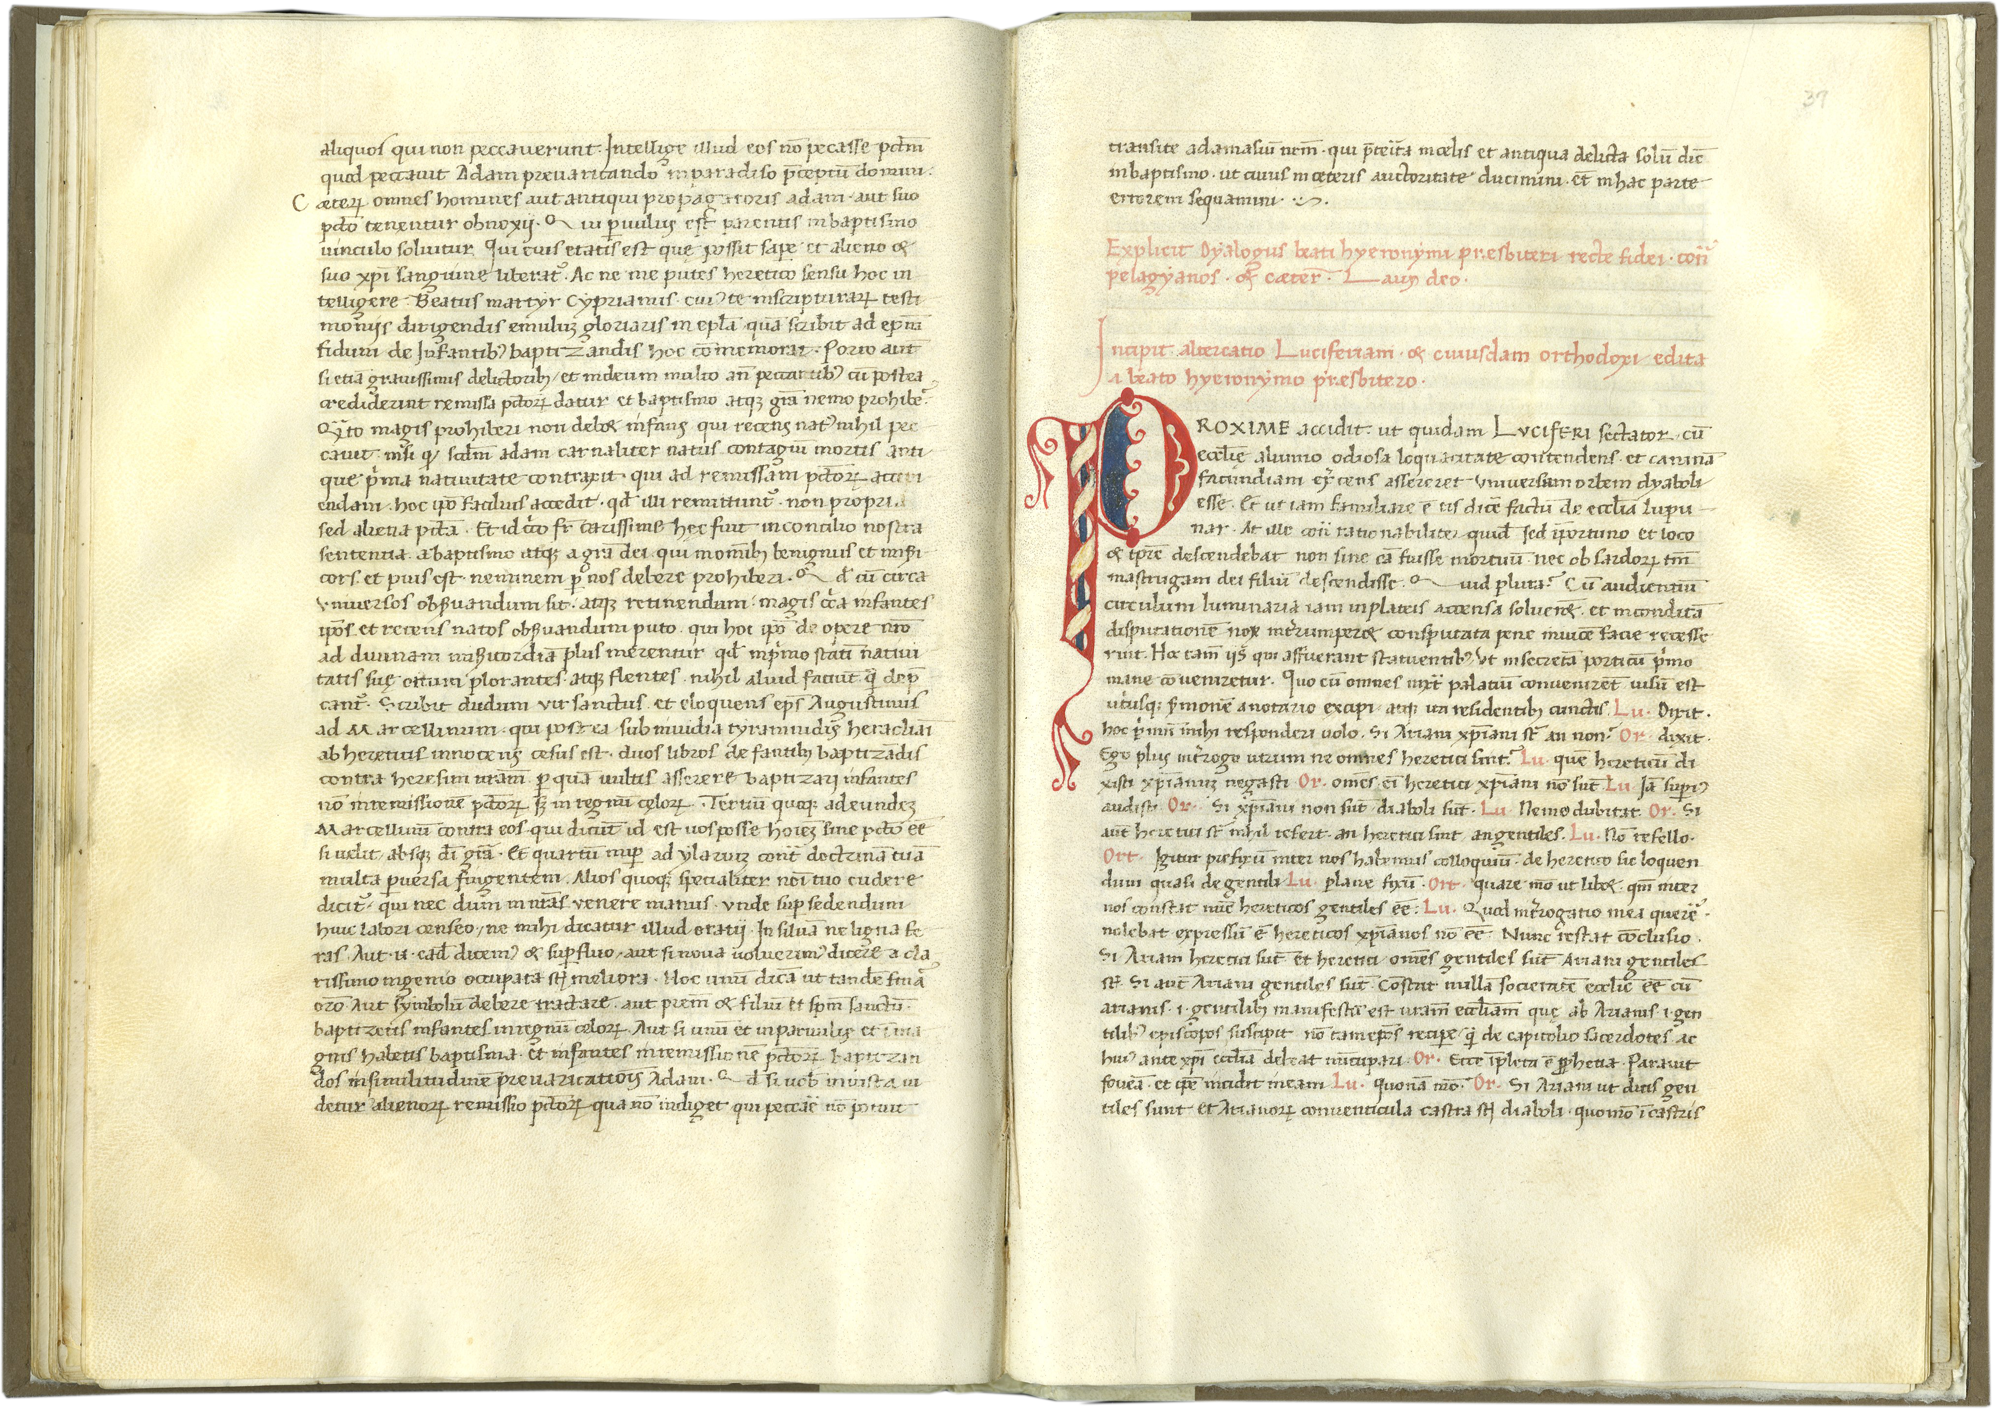 aliquos qui non peccauerunt. Intellige illud eos nō pecasse pctm̄
quod peccauit Adam preuaricando in paradiso p̄ceptū domini.
Cæterꝝ omnes homines aut antiqui propagatoris adam aut suo
pctō tenentur obnoxij. Qui puulus est parentis in baptismo
uinculo soluitur. Qui eius etatis est que possit sape et alieno &
suo xp̄i sanguine liberat᷒. Ac ne me putes heretico sensu hoc in
telligere. Beatus martyr Cyprianus cui᷒ te in scripturarꝝ testi
monijs dirigendis emulū gloriaris in epl̄a quā scribit ad ep̄m
fidum de Infantib᷒ baptizandis hoc cōmemorat. Porro aut̄
si etiā grauissimis delictorib᷒ et in deum multo an̄ peccantib᷒ cū postea
crediderint remissa pctōrꝝ datur et baptismo atqꝫ grā nemo prohibet᷒.
Qto magis prohiberi non debet infans qui recens nat᷒ nihil pec
cauit nisi qꝫ scdm̄ adam carnaliter natus contagiū mortis anti
que pma natiuitate contraxit qui ad remissam pctōrꝝ accipi
endam hoc ipō facilius accedit qd illi remittunt᷒ non propria
sed aliena pctā. Et idcirco fr̄ carissime hec fuit in concilio nostra
sententia a baptismo atqꝫ a grā dei qui momib᷒ benignus et misi
cors et pius est neminem p nos debere prohiberi. Qd cū circa
vniuersos obseruandum sit atqꝫ retinendum magis circa infantes
ipōs et recens natos obseruandum puto qui hoc ipō de opere nrō
ad diuinam misicordiā plus merentur qd in primo statī natiui
tatis suę ortum plorantes atqꝫ flentes nihil aliud faciūt q̄ dep̄
cant᷒. Scribit dudum vir sanctus et eloquens ep̄s Augustinus
ad Marcellinum qui postea sub inuidia tyrannidis heracliani
ab hereticis innocens cesus est duos libros de fantib᷒ baptizādis
contra heresim uram̄ p quā uultis asserere baptizari infantes
nō in remissionē pctōrꝝ sꝫ in regnū celorꝝ. Tertiū quoqꝫ ad eundeꝫ
Marcellinū contra eos qui dicūt id est uos posse hoieꝫ sine pctō eē
si uelit absqꝫ di grā. Et quartū nup ad ylariuꝫ cont̄ doctrinā tuā
multa puersa fingentem. Alios quoqꝫ specialiter noī tuo cudere
dicit᷒ qui nec dum in nrās venere manus. vnde sup sedendum
huic labori censeo ne mihi dicatur illud oratij. In siluā ne ligna fe
ras. Aut ead̄ dicem᷒ & supfluo aut si noua uoluerim᷒ dicere a cla
rissimo ingenio occupata st̄ meliora. Hoc unū dicā ut tandē finiat᷒
orō. Aut symbolū debere tractare aut prem̄ & filiū et spm̄ sanctū
baptizetis infantes in regnū celorꝝ. Aut si unū et in paruulis et i ma
gnis habetis baptisma et infantes in remissionē pctōrꝝ baptizan
dos in similitudinē preuaricationis Adam. Qd si uob᷒ iniusta ui
detur alienorꝝ remissio pctōrꝝ qua nō indiget qui peccare nō potuit
37
transite ad amasiū urm̄ qui p̄terita in celis et antiqua delicta solui dic̄
in baptismo ut cuius in ceteris auctoritate ducimini et̄ in hac parte
errorem sequamini.
Explicit Dyalogus beati hyeronymi presbiteri recte fidei cont̄
pelagyanos & cæter̄. Laus deo.
Incipit altercatio Luciferiani & cuiusdam orthodoxi edita
a beato hyeronymo presbitero.
PROXIME accidit ut quidam LVCIFERI sectator cū
ecclīe alumno odiosa loquacitate contendens et caninā
facundiam exercens assereret vniuersum orbem dyaboli
esse. Et ut iam familiare ē iis dicē factū de ecclīa lupu
nar. At ille cont̄ rationabiliter quid̄ sed īportuno et loco
& tpre descendebat non sine cā fuisse mortuū nec ob sardorꝝ tm̄
mastrugam dei filiū descendisse. Quid plura? Cū audientiū
circulum luminaria iam in plateis accensa soluerēt et inconditā
disputationē nox interrumperet consputata pene inuicē facie recesse
runt. Hoc tam̄ iis qui affuerant statuentib᷒ vt in secretā porticū pmo
mane cōueniretur. Quo cū omnes inxt̄ palatiū conuenirēt uisū est
utiusqꝫ sermonē a notario excipi atqꝫ ita residentib᷒ cunctis. Lu. Dixit.
hoc pmū mihi responderi uolo. Si Ariani xpiani st̄ an non? Or. dixit.
Ego plus interrogo utrum ne omnes heretici sint? Lu. quē hereticū di
xisti xpianū negasti. Or. omēs eī heretici xpiani nō sūt. Lu. Iā superi᷒
audisti. Or. Si xpiani non sūt diaboli sūt. Lu. Nemo dubitat. Or. Si
aut heretici st̄ nihil refert an heretici sint an gentiles. Lu. Nō refello.
Ort. Igitur prefixū inter nos habemus colloquiū de heretico sic loquen
dum quasi de gentili. Lu. plane fixū. Ort. quare mō ut libet qm̄ inter
nos constat nūc hereticos gentiles eē. Lu. Quod interrogatio mea querē
nolebat expressū ē hereticos xpianos nō eē. Nunc restat cōclusio.
Si Ariani heretici sūt et̄ heretici omēs gentiles sūt Ariani gentiles
st̄. Si aut Ariani gentiles sūt. Constat nullā societatē ecclīe eē cū
arianis .i. gentilib᷒ manifestū est uram̄ eccliam que ab Arianis .i. gen
tilib᷒ episcopos suscipit nō tam ep̄os recipe q̄ de capitolio sacerdotes ac
hui᷒ ante xpi ecclīa debeat nūcupari. Or. Ecce īpleta ē pphetia. Parauit
foueā et ipse incidit in eam. Lu. quonā mō? Or. Si Ariani ut dicis gen
tiles sunt et Arianorꝝ conuenticula castra st̄ diaboli quomō ī castris